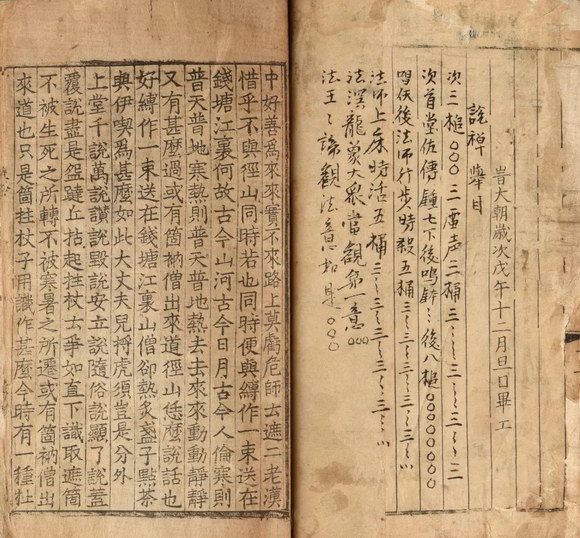 旹大朝歲次戊午十二月旦日畢工
說禅舉目
次三槌○○○三虛声三桶三〻〻三〻〻三〻〻三
次首堂佐傳鍾七下後鳴〻後八槌○○○○○○○○
法師行步時殺五桶三〻三〻三〻三〻三〻
法師上床時活五桶三〻三〻三〻三〻三〻
法涅龍象大衆當觀第一意○○○
法王〻諦觀法意如是○○○
中好善爲來來實不來路上莫虧危師云遮二老漢
惜乎不與徑山同時若也同時便與縛作一束送在
錢塘江裏何故古今山河古今日月古今人倫寒則
普天普地寒熱則普天普地熱去去來來動動靜靜
又有甚麽過或有箇衲僧出來道徑山恁麽說話也
好縛作一束送在錢塘江裏山僧卻熱炙盞子點茶
與伊喫爲甚麽如此大丈夫兒捋虎須豈是分外
上堂千說萬說讃說毀說安立說隨俗說顯了說蓋
覆說盡是盌躂丘拈起拄杖云爭如直下識取遮箇
不被生死之所轉不被寒暑之所遷或有箇衲僧出
來道也只是箇拄杖子用識作甚麽今時有一種杜